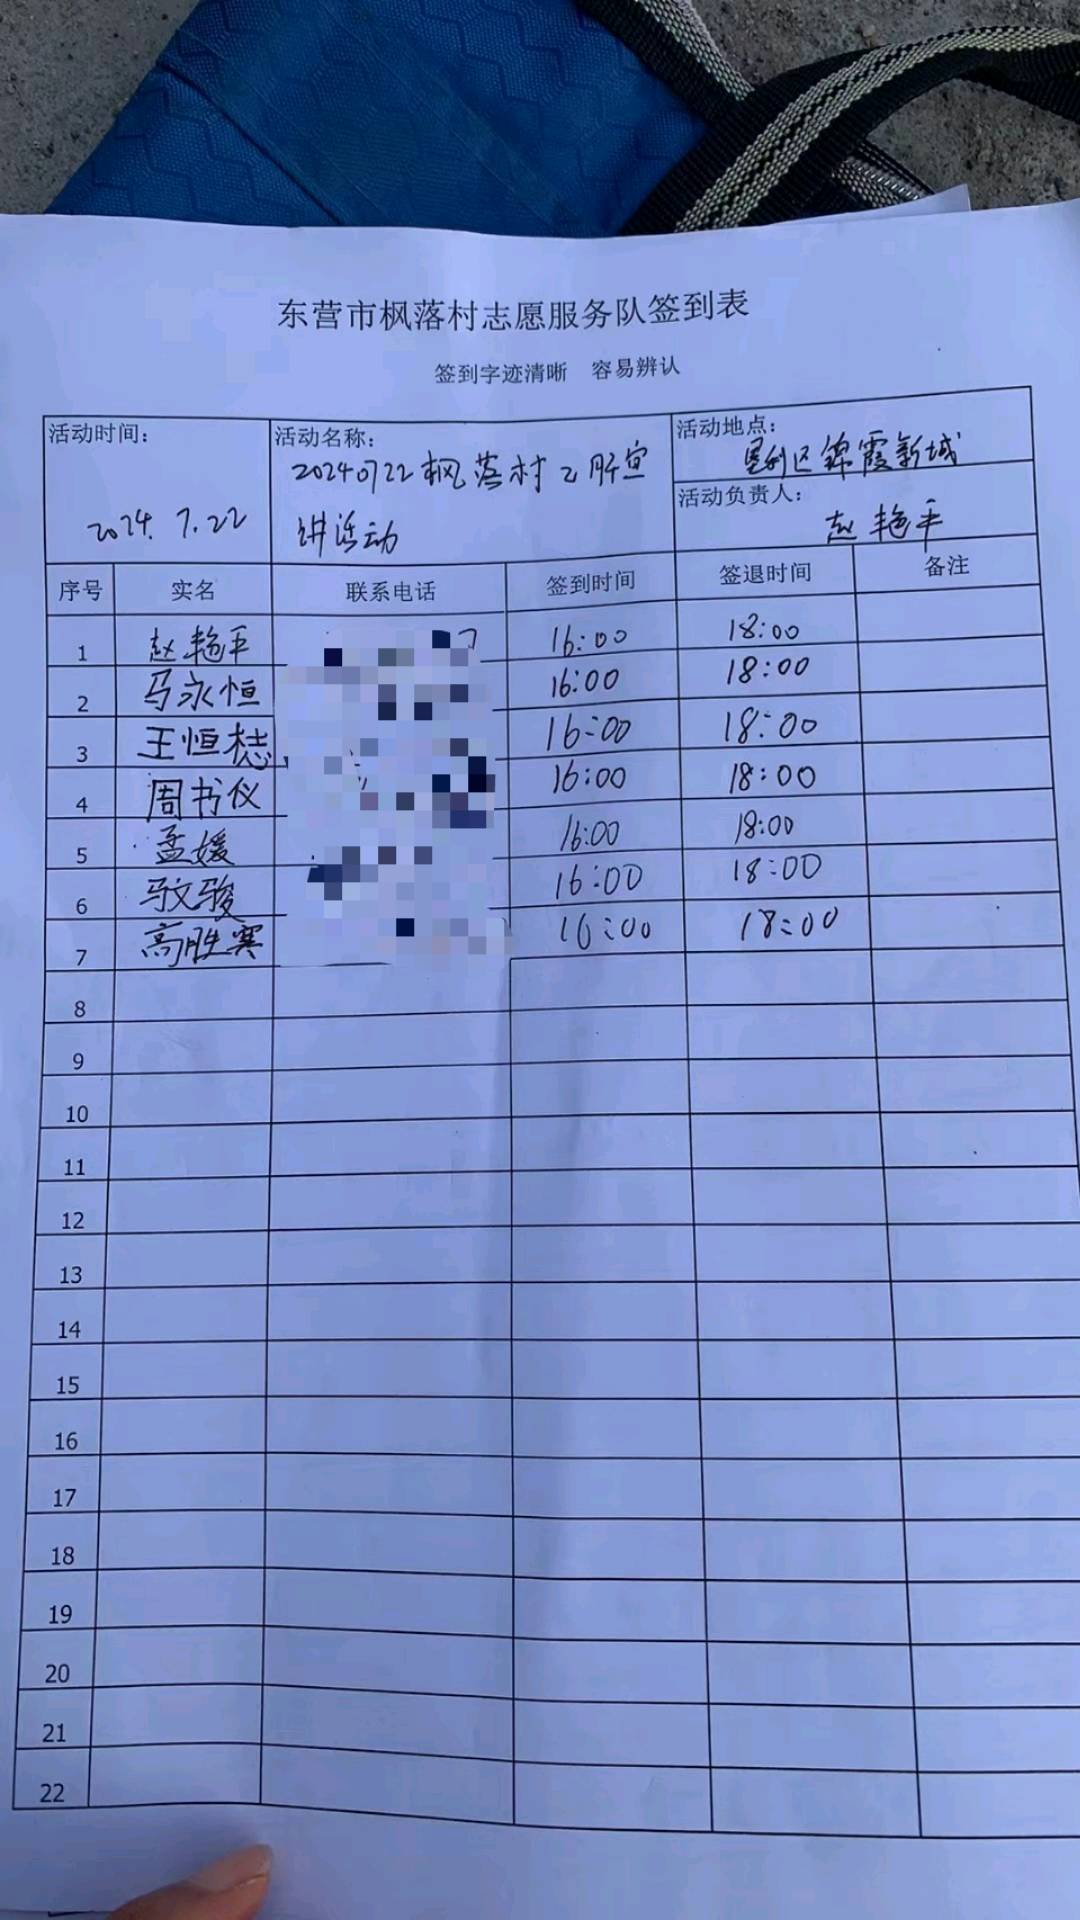 东营市枫落村志愿服务队签到表
签到字迹清晰 容易辨认
活动时间: 2024.7.22
活动名称: 20240722枫落村乙肝宣
讲活动
活动地点: 垦利区锦霞新城
活动负责人: 赵艳平
序号 实名 联系电话 签到时间 签退时间 备注
1 赵艳平 16:00 18:00
2 马永恒 16:00 18:00
3 王恒 16:00 18:00
4 周书仪 16:00 18:00
5 孟媛 16:00 18:00
6 马文骏 16:00 18:00
7 高胜寒 16:00 18:00
8
9
10
11
12
13
14
15
16
17
18
19
20
21
22